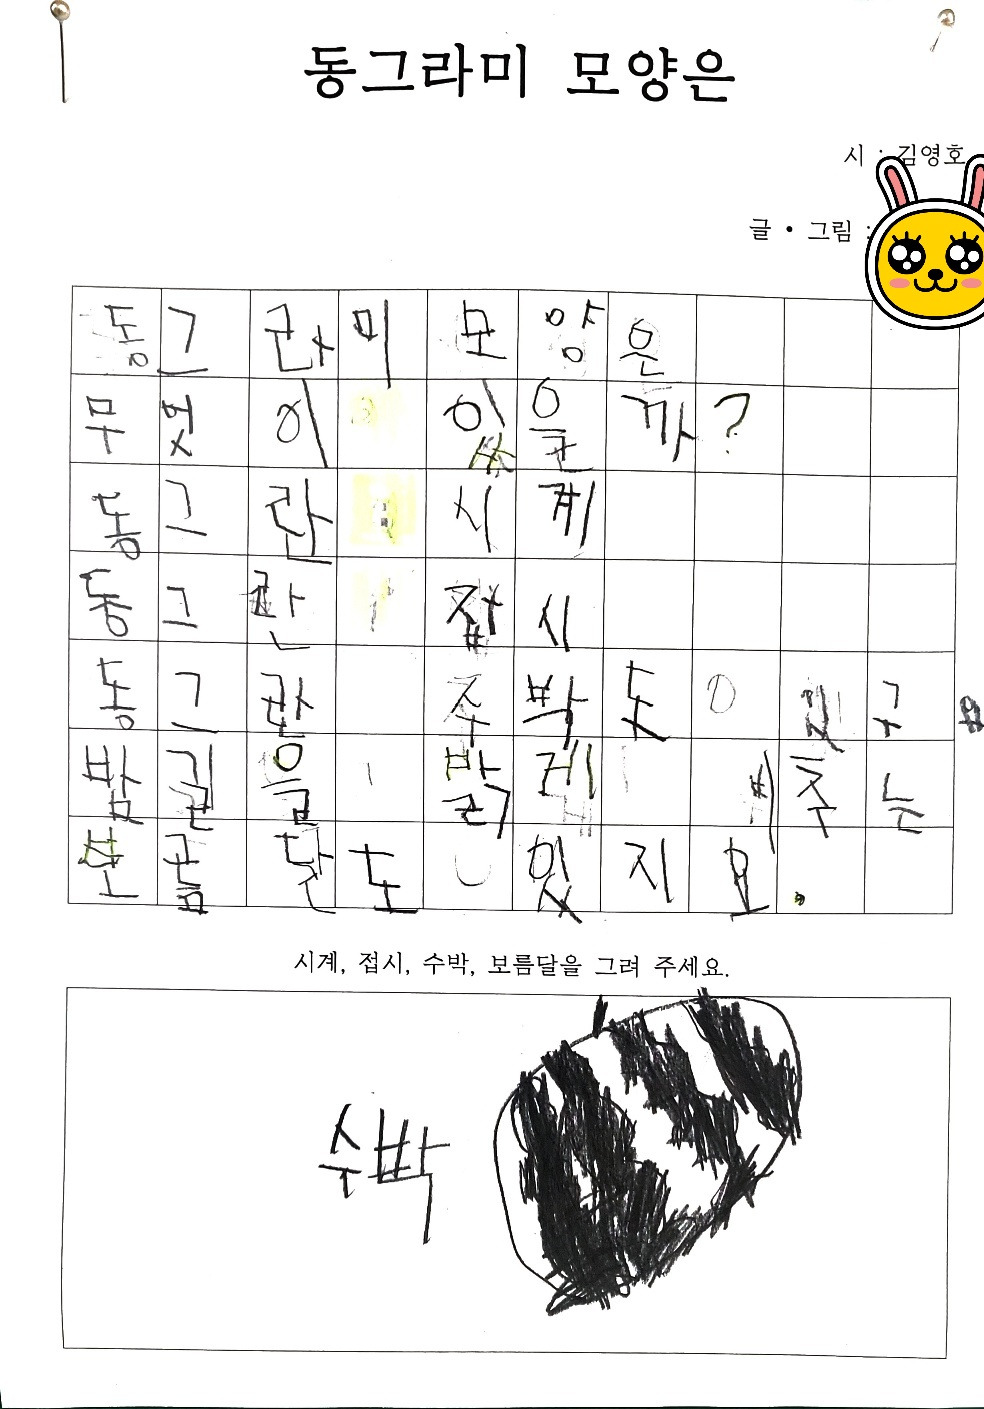 동그라미 모양은
시 : 김영호
글 • 그림 :
동그라미 모양은
무엇이 있을까?
동그란 시계
동그란 접시
동그란 수박도 있구요
밤길을 밝게 비추는
보름달도 있지요.
시계, 접시, 수박, 보름달을 그려 주세요.
수박